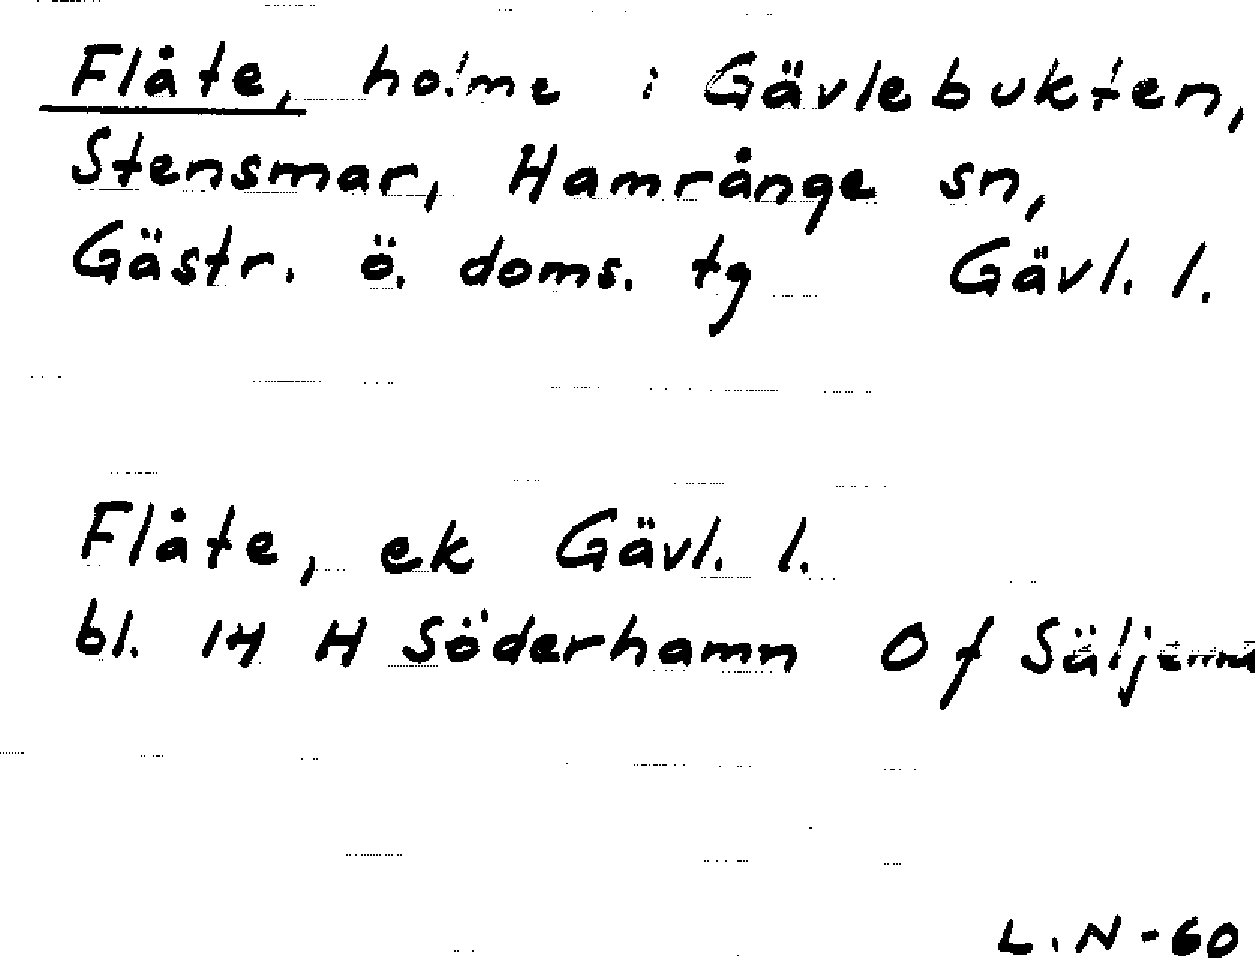 Flåte, holme i Gävlebukten,
Stensmar, Hamrånge sn,
Gästr. ö. doms. tg Gävl. l.
Flåte, ek Gävl. l.
bl. 14 H Söderhamn 0 f
L.N-60